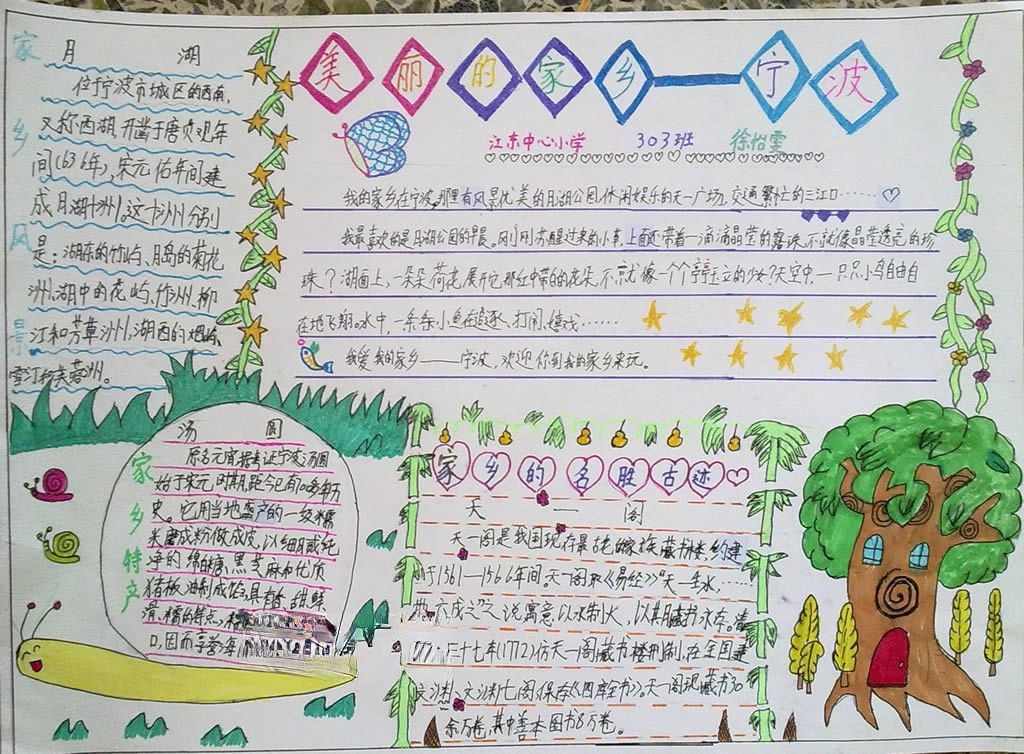 美丽的家乡——宁波
江东中心小学 303班 徐怡雯
家乡风景
月 湖
位于宁波市城区的西南,
又称西湖,开凿于唐贞观年
间(636年),宋元佑年间建
成月湖十洲。这十洲分别
是:湖东的竹屿、月岛的菊花
洲,湖中的花屿、竹洲、柳
汀和芳草洲,湖西的烟屿、
雪汀和芙蓉洲。
我的家乡在宁波,那里有风景优美的月湖公园,休闲娱乐的天一广场,交通繁忙的三江口……
我最喜欢的是月湖公园的早晨。刚刚苏醒过来的小草,上面还带着一滴滴晶莹的露珠,不就像晶莹透亮的珍
珠?湖面上,一朵朵荷花,展开它那红中带白的花朵,不就像一个个亭亭玉立的少女?天空中,一只只小鸟自由自
在地飞翔。水中,一条条小鱼在追逐、打闹、嬉戏……
我爱我的家乡——宁波,欢迎你到我的家乡来玩。
家乡特产
汤 圆
原名元宵据考证宁波汤圆
始于宋元时期,距今已有700多年历
史。它用当地盛产的一级糯
米磨成粉做成皮,以细腻或纯
净的绵白糖、黑芝麻和优质
猪板油制成馅,具有香、甜、鲜、
滑、糯的特点,
口,因而享誉海
家乡的名胜古迹
天 一 阁
天一阁是我国现存最古老的家族藏书楼,约建
于1561—1566年间。天一阁取《易经》"天一生水,……
六成之"之说,寓意以水制火,以其藏书永存。清
三十七年(1772)仿天一阁藏书楼形制,在全国建
文渊、文津七阁,保存《四库全书》。天一阁现藏书30
余万卷,其中善本图书8万卷。